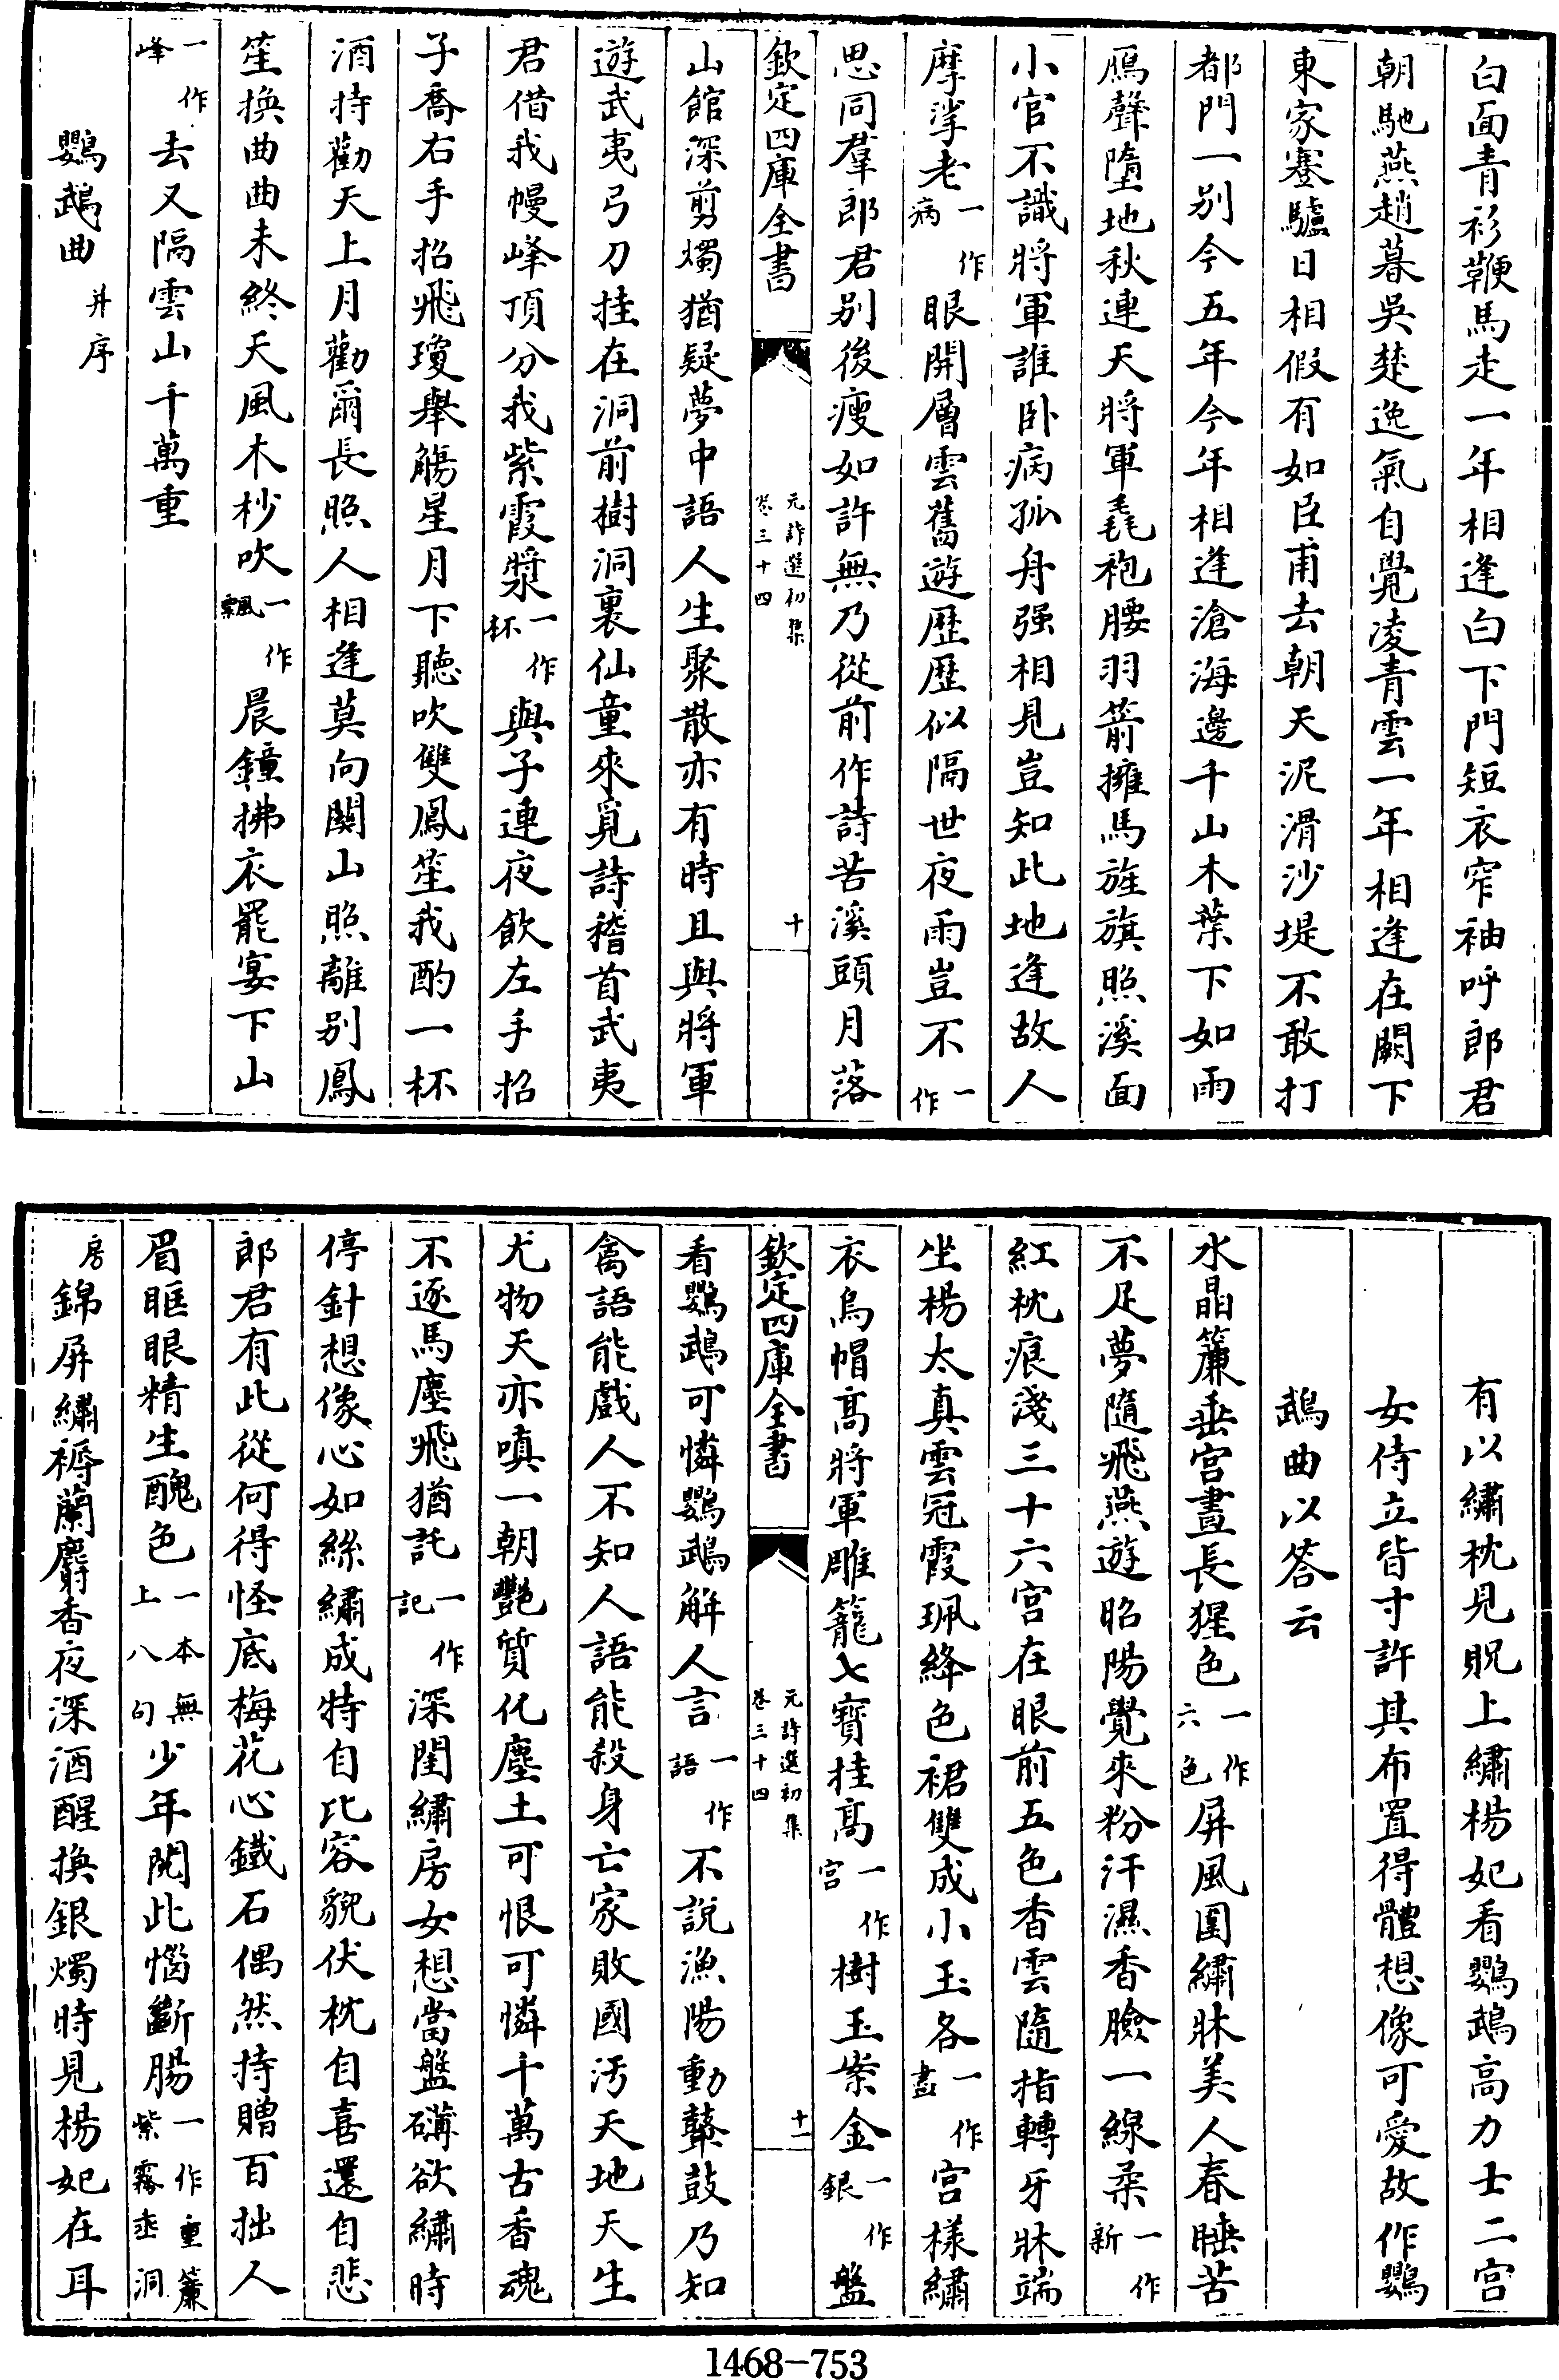 白面青衫鞭馬走一年相逢白下門短衣窄袖呼郎君
朝馳燕趙暮吳楚逸氣自覺凌青雲一年相逢在闕下
東家蹇驢日相假有如臣甫去朝天泥滑沙堤不敢打
都門一别今五年今年相逢滄海邊千山木葉下如雨
鴈聲墮地秋連天將軍毳袍腰羽箭擁馬旌旗照溪面
小官不識將軍誰卧病孤舟强相見豈知此地逢故人
摩挲老一作病眼開層雲舊遊歴歴似隔世夜雨豈不一作
思同羣郎君别後瘦如許無乃從前作詩苦溪頭月落
欽定四庫全書
元詩選初集
卷三十四
十
山館深剪燭猶疑夢中語人生聚散亦有時且與將軍
遊武夷弓刀挂在洞前樹洞裏仙童來覓詩稽首武夷
君借我幔峰頂分我紫霞漿一作杯與子連夜飲左手招
子喬右手招飛瓊舉觴星月下聽吹雙鳳笙我酌一杯
酒持勸天上月勸爾長照人相逢莫向關山照離别鳳
笙換曲曲未終天風木杪吹一作飄晨鐘拂衣罷宴下山
一作峰去又隔雲山千萬重
鸚鵡曲并序
有以繡枕見貺上繡楊妃看鸚鵡高力士二宫
女侍立皆寸許其布置得體想像可愛故作鸚
鵡曲以答云
水晶簾垂宫晝長猩色一作六色屏風圍繡牀美人春睡苦
不足夢隨飛燕遊昭陽覺來粉汗濕香臉一線柔一作新
紅枕痕淺三十六宫在眼前五色香雲隨指轉牙牀端
坐楊太真雲冠霞珮絳色裙雙成小玉各一作畫宫様繡
衣烏帽高將軍雕籠七寶挂高一作宫樹玉案金一作銀盤
欽定四庫全書
元詩選初集
卷三十四
十一
看鸚鵡可憐鸚鵡解人言一作語不說漁陽動鼙鼓乃知
禽語能戲人不知人語能殺身亡家敗國汚天地天生
尤物天亦嗔一朝艷質化塵土可恨可憐千萬古香魂
不逐馬塵飛猶託一作記深閨繡房女想當盤礴欲繡時
停針想像心如絲繡成特自比容貌伏枕自喜還自悲
郎君有此從何得怪底梅花心鐵石偶然持贈百拙人
眉眶眼精生醜色一本無上八句少年閲此惱斷腸一作重簾紫霧垂洞
房錦屏繡褥蘭麝香夜深酒醒換銀燭時見楊妃在耳
1468-753